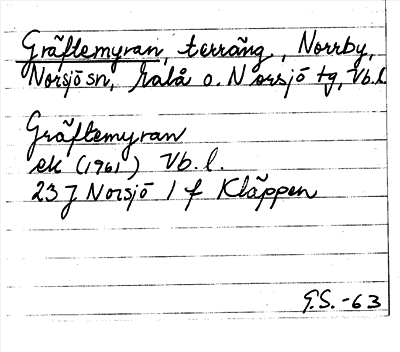 Gräftemyran, terräng, Norrby,
Norsjö sn, Malå o. Norsjö tg, Vb.l.
Gräftemyran
ek (1961) Vb. l.
23 J Norsjö 1 f Kläppen
G.S. -63